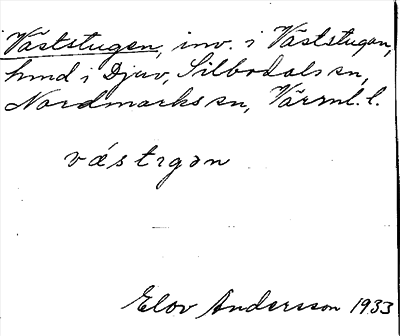 Väststugen, inv. i Väststugan,
hmd i Djuv, Silbodals sn,
Nordmarks sn, Värml. l.
västrgən
Elov Andersson 1933